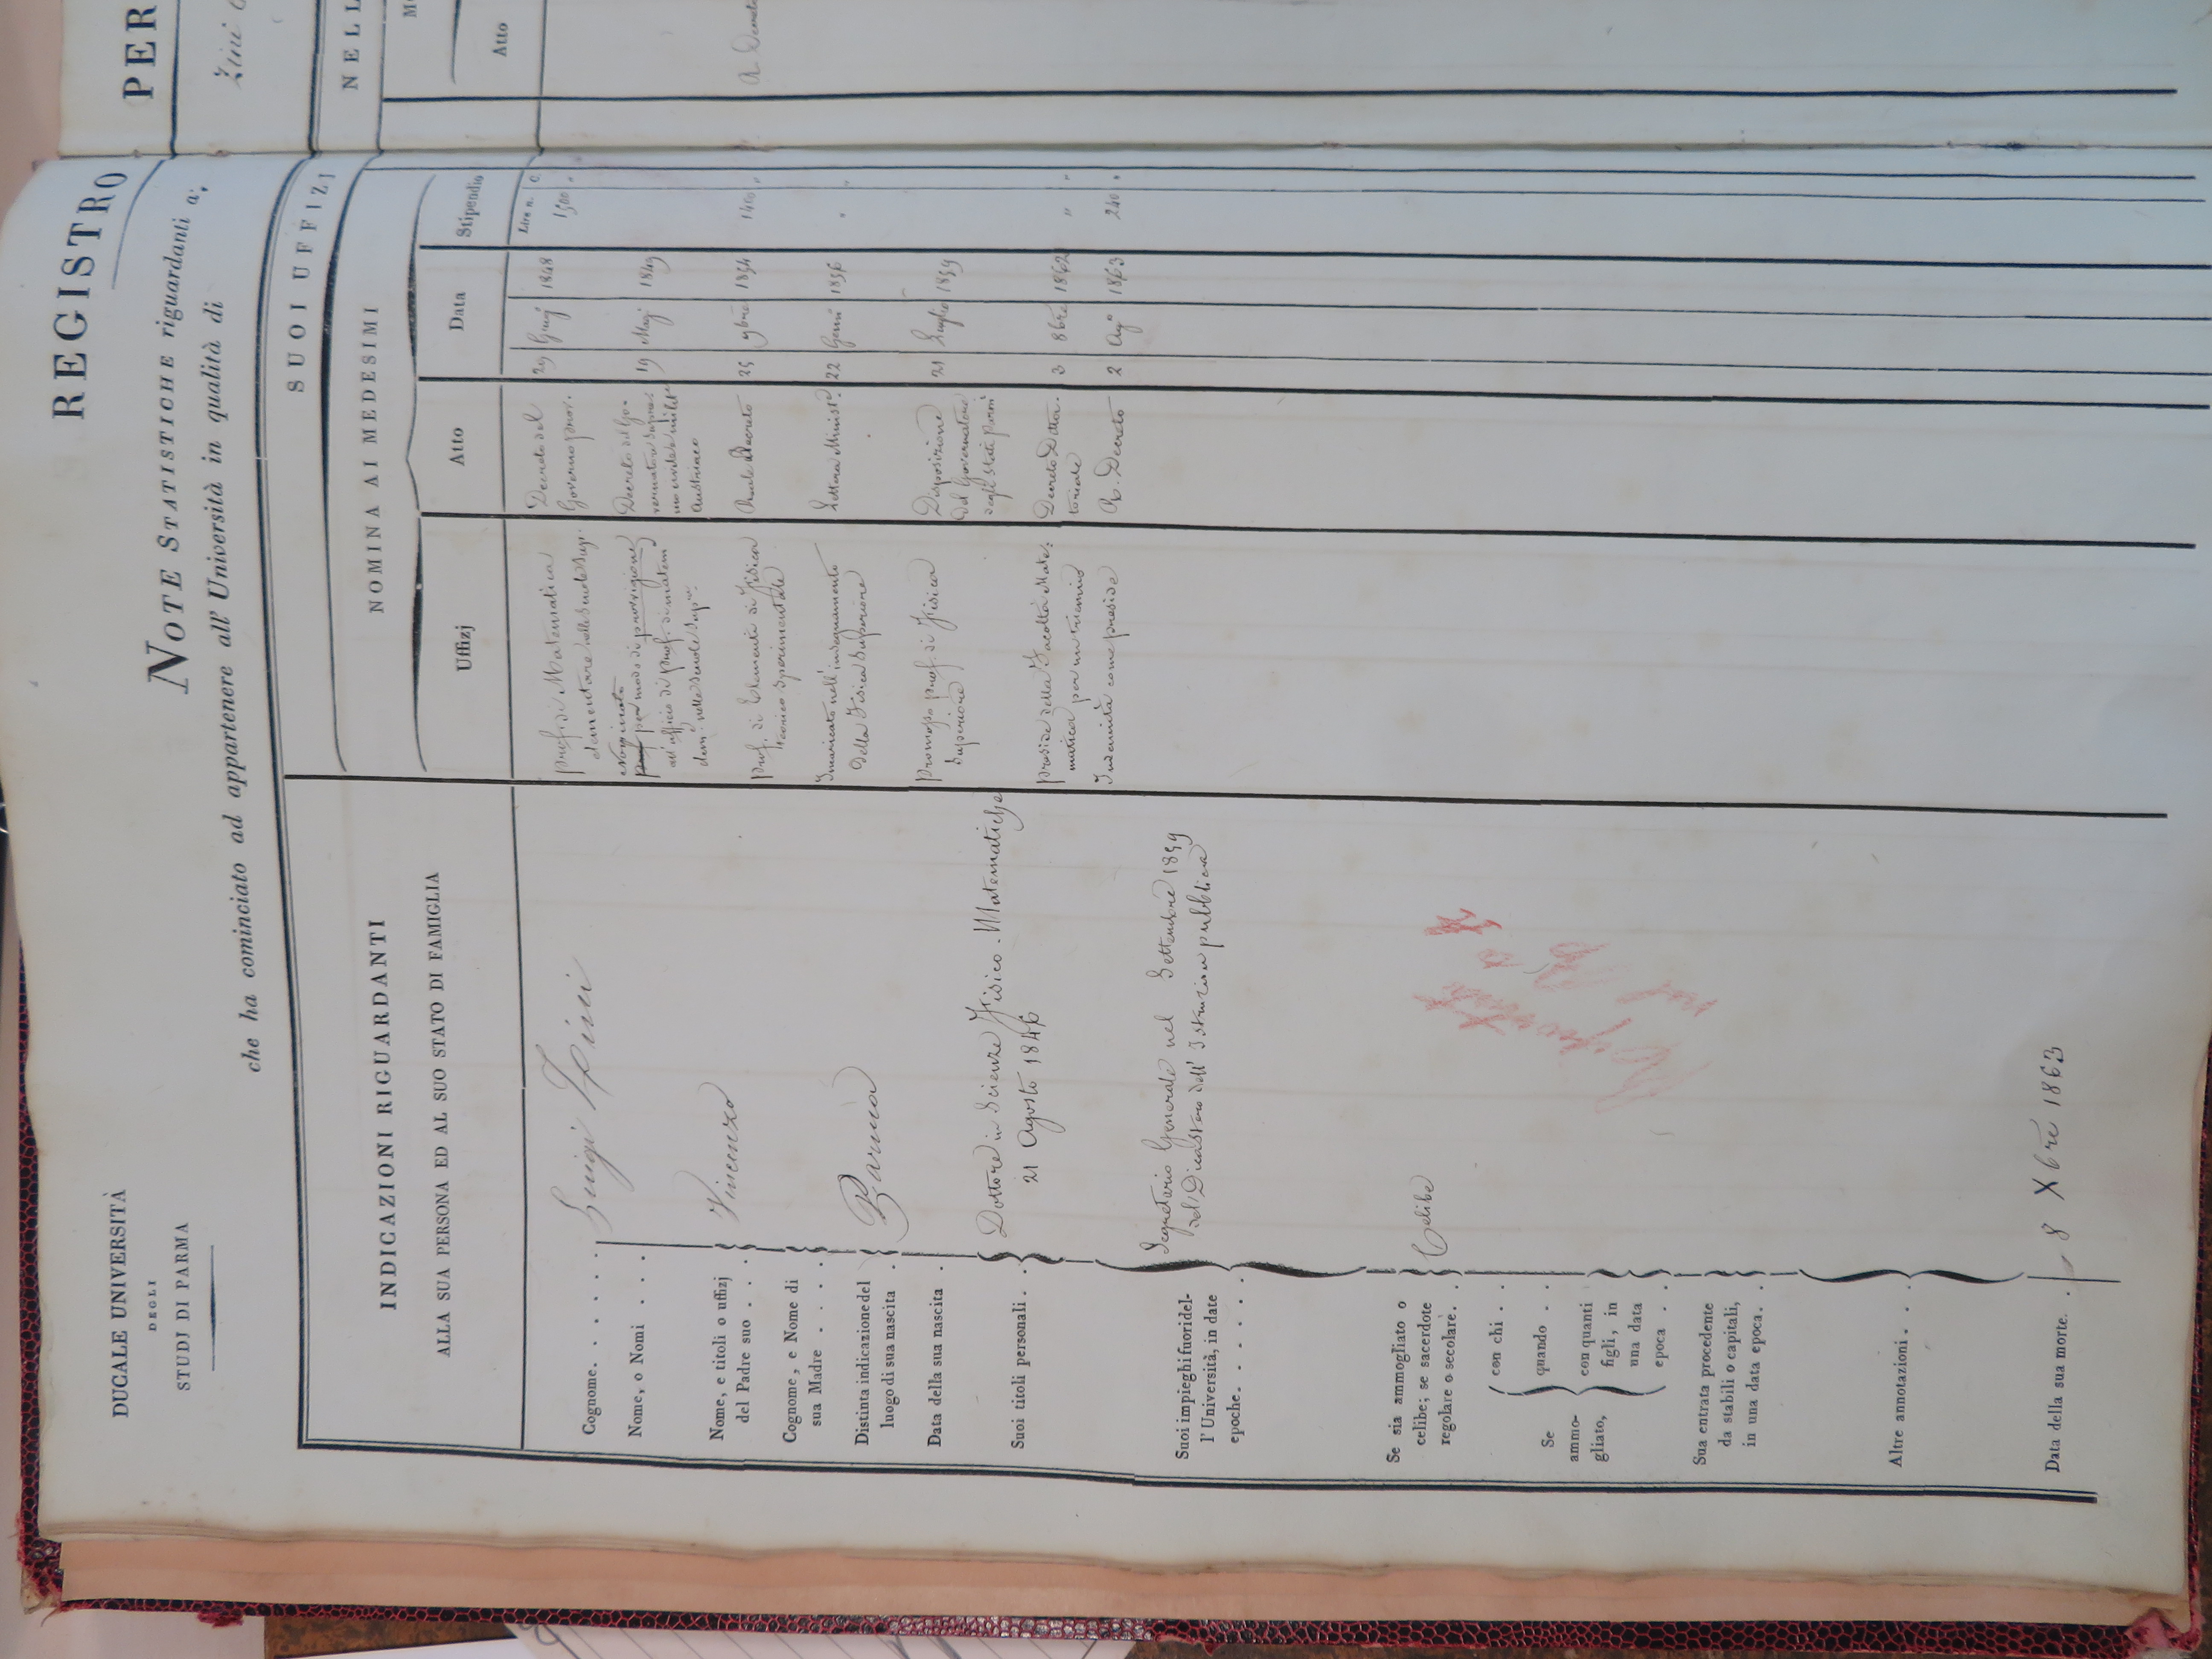 DUCALE UNIVERSITÀ
DEGLI
STUDJ DI PARMA
REGISTRO
PER
NOTE STATISTICHE riguardanti a:
che ha cominciato ad appartenere all' Università in qualità di
Zini
INDICAZIONI RIGUARDANTI
ALLA SUA PERSONA ED AL SUO STATO DI FAMIGLIA
SUOI UFFIZJ
NELL
NOMINA AI MEDESIMI
Uffizj
Atto
Data
Stipendio
Atto
Lire n. C.
Cognome. . . . . .
Nome, o Nomi . . . .
Luigi Pini
Nome, e titoli o uffizj
del Padre suo . . .
Vincenzo
Cognome, e Nome di
sua Madre . . . .
Distinta indicazione del
luogo di sua nascita .
Parma
Data della sua nascita .
Suoi titoli personali . .
Dottore in Scienze Fisico-Matematiche
21 Agosto 1846
Suoi impieghi fuori del-
l' Università, in date
epoche. . . . . .
Segretario Generale nel Settembre 1859
del Dicastero dell' Istruzion pubblica
Se sia ammogliato o
celibe; se sacerdote
regolare o secolare. .
Celibe
Se
ammo-
gliato,
con chi . .
quando . .
con quanti
figli, in
una data
epoca . .
Sua entrata procedente
da stabili o capitali,
in una data epoca. .
Altre annotazioni. . .
Data della sua morte. .
8 Xbre 1863
prof. di Matematica
elementare nelle Scuole Sup.
Decreto del
Governo prov.
29 Giug 1848 1500 "
Nominato
per modo di provvigione
all'ufficio di prof. di matem
elem. nelle Scuole Supre.
Decreto del Go-
vernatore Supre-
mo civile e milit
Austriaco
19 Magg 1849
prof. di Elementi di Fisica
teorico sperimentale
Reale Decreto
25 9bre 1854 1400 "
A. Decreto
Incaricato nell'insegnamento
della Fisica Superiore
Lettera Minist.
22 Genn 1856 " "
Promosso prof. di Fisica
Superiore
Disposizione
del Governatore
degli Stati Parmi
21 Luglio 1859
preside della Facoltà Mate-
matica per un triennio
Decreto Ditta-
toriale
3 8bre 1862 " "
Indennità come preside
R. Decreto
2 Ago 1863 240 "